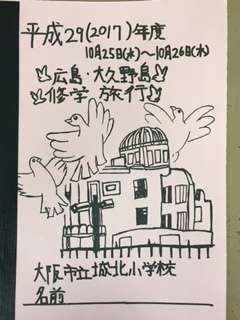 平成29(2017)年度
10月25日(水)~10月26日(木)
広島・大久野島
修学旅行
大阪市立城北小学校
名前